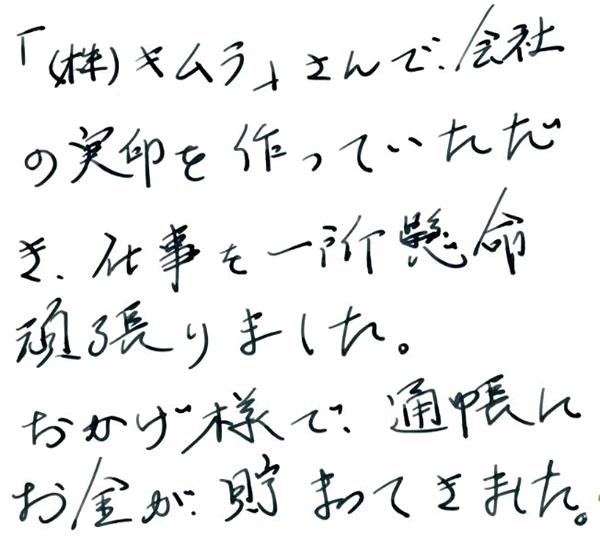 「(株)キムラ」さんで、会社
の実印を作っていただ
き、仕事を一所懸命
頑張りました。
おかげ様で、通帳に
お金が貯まってきました。